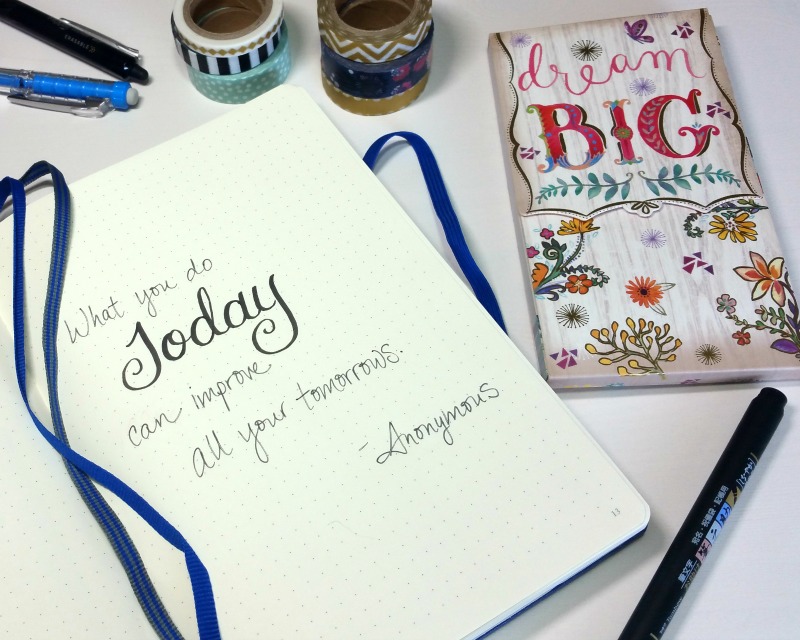 What you do
Today
can improve
all your tomorrows.
- Anonymous
13
dream
BIG